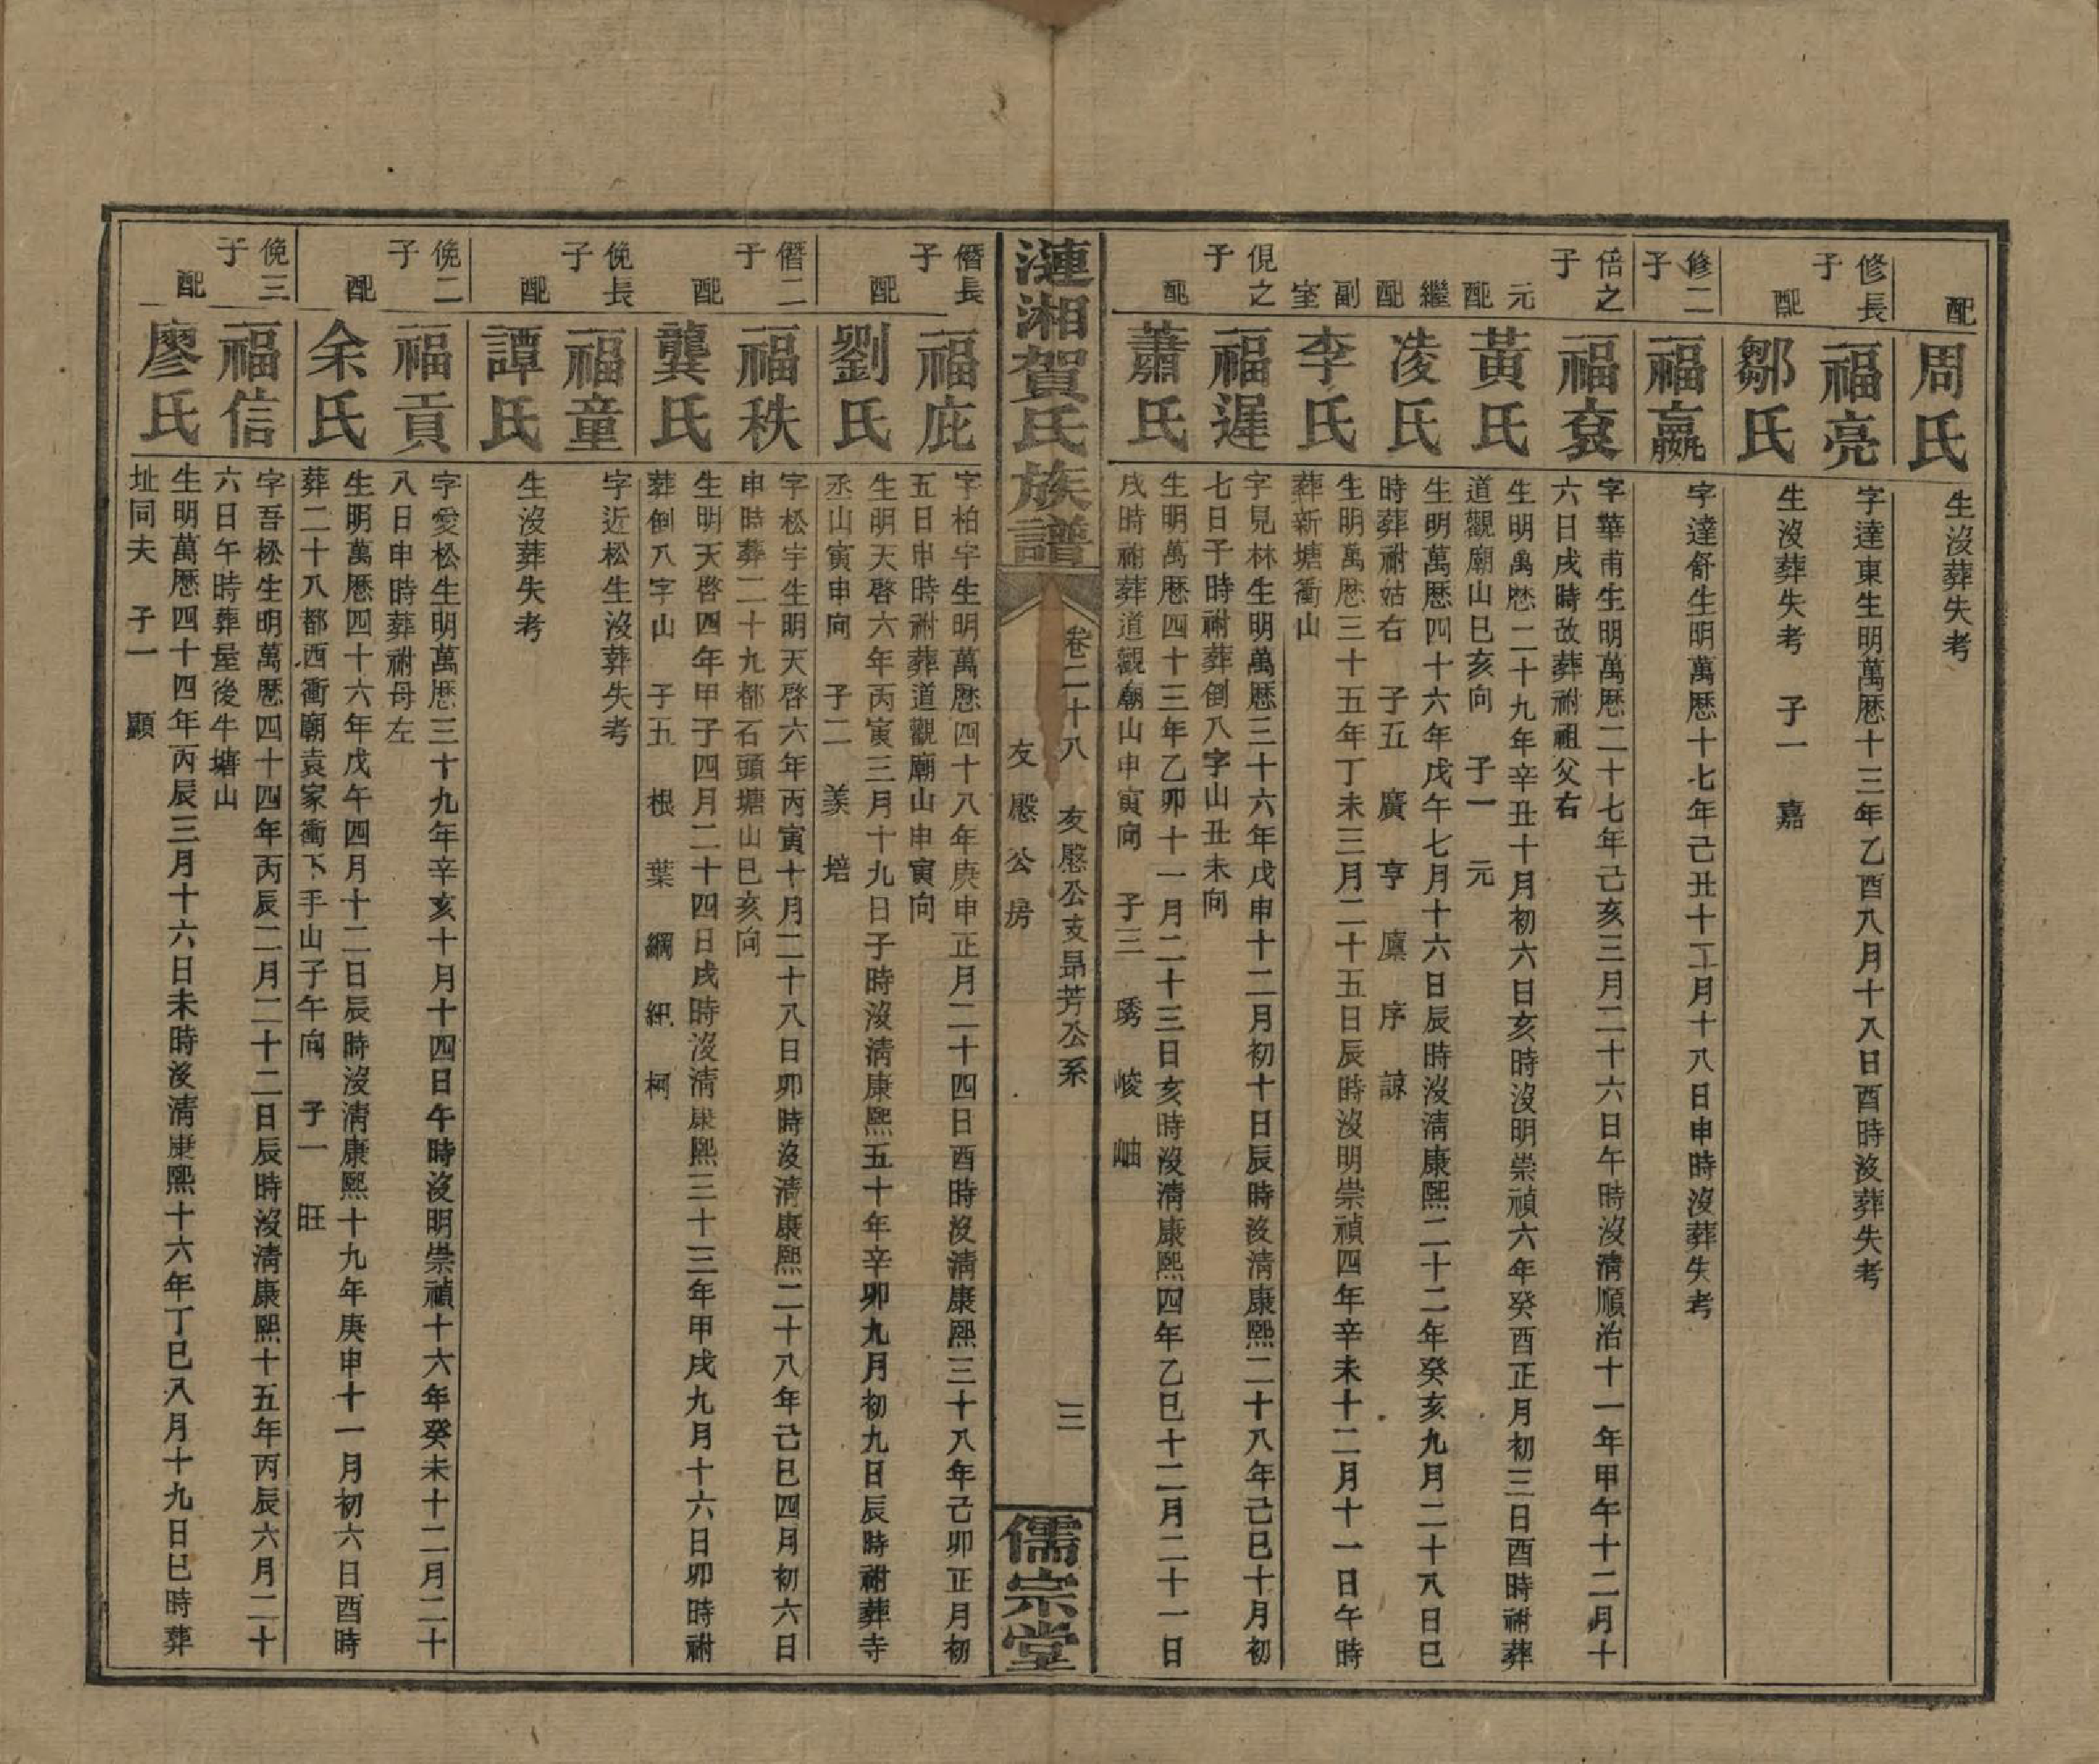 配 周氏 生沒葬失考
修長子 福亮 字達東生明萬歷十三年乙酉八月十八日酉時沒葬失考
配 鄒氏 生沒葬失考 子一 嘉
修二子 福嬴 字達舒生明萬歷十七年己丑十二月十八日申時沒葬失考
倍之子 福袞 字華甫生明萬歷二十七年己亥三月二十六日午時沒清順治十一年甲午十二月十
六日戌時改葬祔祖父右
元配 黃氏 生明萬歷二十九年辛丑十月初六日亥時沒明崇禎六年癸酉正月初三日酉時祔葬
道觀廟山巳亥向 子一 元
繼配 凌氏 生明萬歷四十六年戊午七月十六日辰時沒清康熙二十二年癸亥九月二十八日巳
時葬祔姑右 子五 廣 亨 廩 序 諒
副室 李氏 生明萬歷三十五年丁未三月二十五日辰時沒明崇禎四年辛未十二月十一日午時
葬新塘衝山
俔之子 福遲 字見林生明萬歷三十六年戊申十二月初十日辰時沒清康熙二十八年己巳十月初
七日子時祔葬倒八字山丑未向
配 蕭氏 生明萬歷四十三年乙卯十一月二十三日亥時沒清康熙四年乙巳十二月二十一日
戌時祔葬道觀廟山申寅向 子三 琇 崚 岫
漣湘賀氏族譜
卷二十八 友慇公支昴芳公系 三
友慇公房
儒宗堂
僭長子 福庇 字柏宇生明萬歷四十八年庚申正月二十四日酉時沒清康熙三十八年己卯正月初
五日申時祔葬道觀廟山申寅向
配 劉氏 生明天啓六年丙寅三月十九日子時沒清康熙五十年辛卯九月初九日辰時祔葬寺
丞山寅申向 子二 羕 培
僭二子 福秩 字松宇生明天啓六年丙寅十月二十八日卯時沒清康熙二十八年己巳四月初六日
申時葬二十九都石頭塘山巳亥向
配 龔氏 生明天啓四年甲子四月二十四日戌時沒清康熙三十三年甲戌九月十六日卯時祔
葬倒八字山 子五 根 葉 綱 紐 柯
俛長子 福童 字近松生沒葬失考
配 譚氏 生沒葬失考
俛二子 福貢 字愛松生明萬歷三十九年辛亥十月十四日午時沒明崇禎十六年癸未十二月二十
八日申時葬祔母左
配 余氏 生明萬歷四十六年戊午四月十二日辰時沒清康熙十九年庚申十一月初六日酉時
葬二十八都西衝廟袁家衝下手山子午向 子一 旺
俛三子 福信 字吾松生明萬歷四十四年丙辰二月二十二日辰時沒清康熙十五年丙辰六月二十
六日午時葬屋後牛塘山
配 廖氏 生明萬歷四十四年丙辰三月十六日未時沒清康熙十六年丁巳八月十九日巳時葬
址同夫 子一 顯